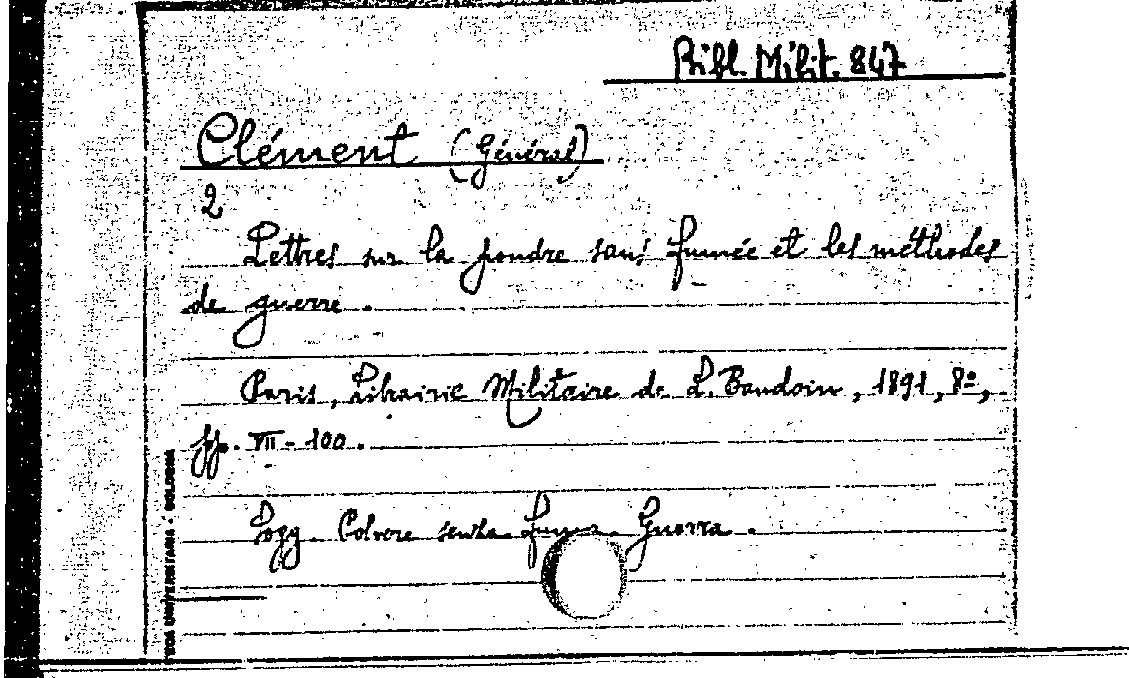 Bibl. Milit. 847
Clément (Général)
2
Lettres sur la poudre sans fumée et les méthodes
de guerre.
Paris, Librairie Militaire de L. Baudoin, 1891, 8º,
pp. VII - 100.
Sogg. Polvere senza fumo. Guerra.
TECA UNIVERSITARIA - BOLOGNA